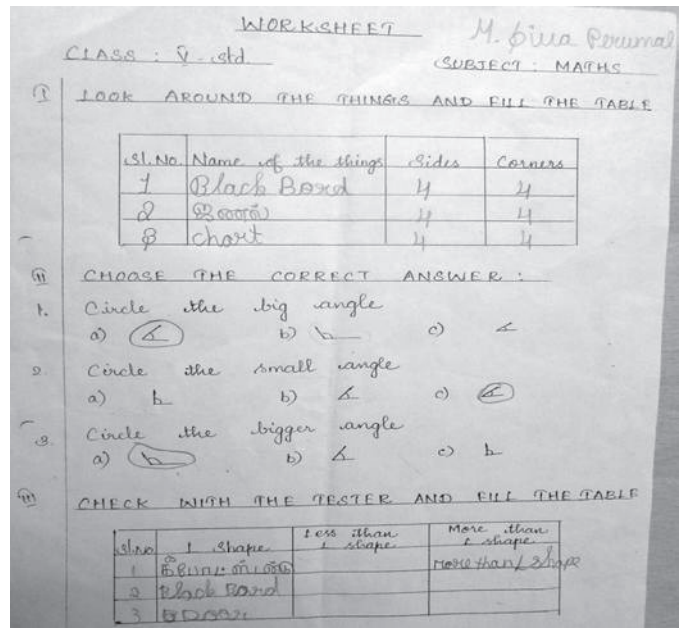 WORKSHEET
M. Siva Perumal
CLASS : V. std
SUBJECT : MATHS
I LOOK AROUND THE THINGS AND FILL THE TABLE
Sl. No Name of the things Sides Corners
1 Black Bord 4 4
2 ஜனல் 4 4
3 chart 4 4
II CHOOSE THE CORRECT ANSWER :
1. Circle the big angle
a) b) c)
2. Circle the small angle
a) b) c)
3. Circle the bigger angle
a) b) c)
III CHECK WITH THE TESTER AND FILL THE TABLE
Sl.No L Shape Less than L shape More than L shape
1 More than L Shape
2 Black Board
3